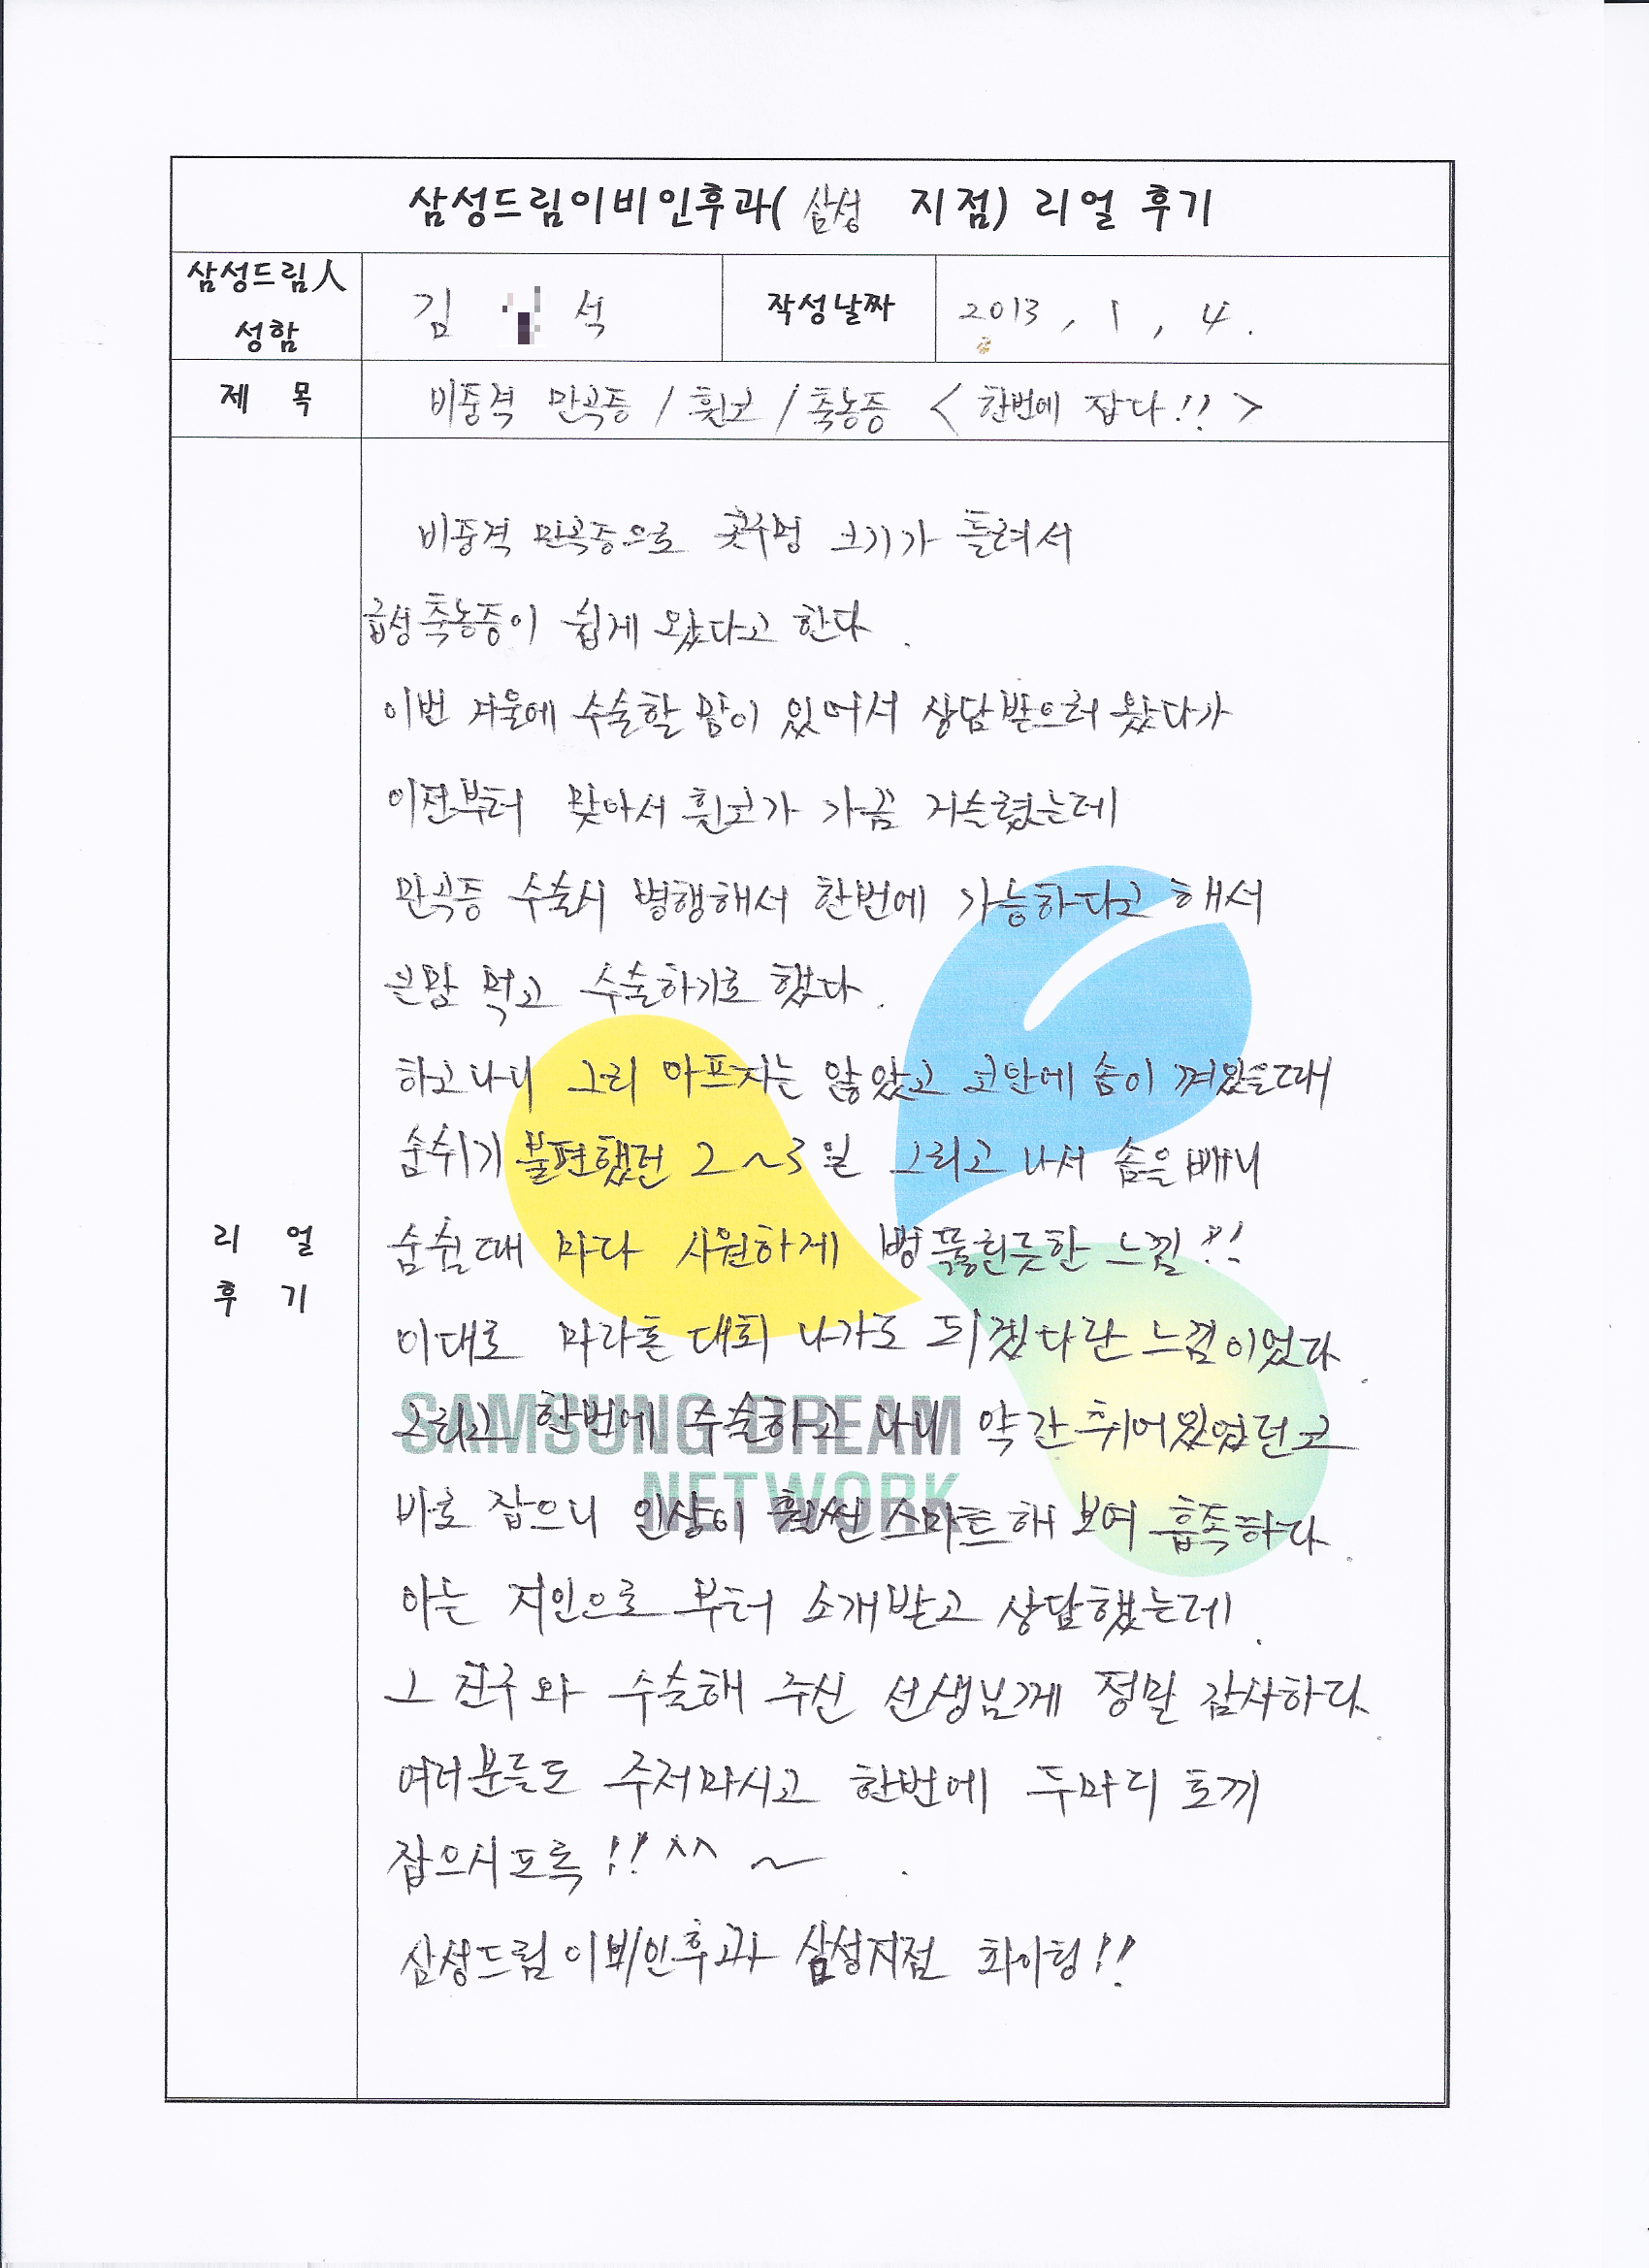 삼성드림이비인후과( 삼성 지점) 리얼 후기
삼성드림人
성함
김 석
작성날짜
2013, 1, 4.
제 목
비중격 만곡증 / 휜코 / 축농증 < 한번에 잡다!! >
리 얼
후 기
비중격 만곡증으로 콧구멍 크기가 틀려서
급성축농증이 쉽게 왔다고 한다.
이번 겨울에 수술할 맘이 있어서 상담받으러 왔다가
이전부터 맞아서 휜코가 가끔 거슬렸는데
만곡증 수술시 병행해서 한번에 가능하다고 해서
큰맘 먹고 수술하기로 했다.
하고나니 그리 아프지는 않았고 코안에 솜이 껴있을때
숨쉬기 불편했던 2~3일 그리고 나서 솜을 빼니
숨쉴때 마다 시원하게 뻥뚫힌듯한 느낌!!
이대로 마라톤 대회 나가도 되겠다란 느낌이었다.
그리고 한번에 수술하고 나니 약간 휘어있었던 코
바로 잡으니 인상이 훨씬 스마트해 보여 흡족하다.
아는 지인으로 부터 소개받고 상담했는데.
그 친구와 수술해 주신 선생님께 정말 감사하다.
여러분들도 주저마시고 한번에 두마리 토끼
잡으시도록!! ^^ ~ .
삼성드림이비인후과 삼성지점 화이팅!!
SAMSUNG DREAM
NETWORK